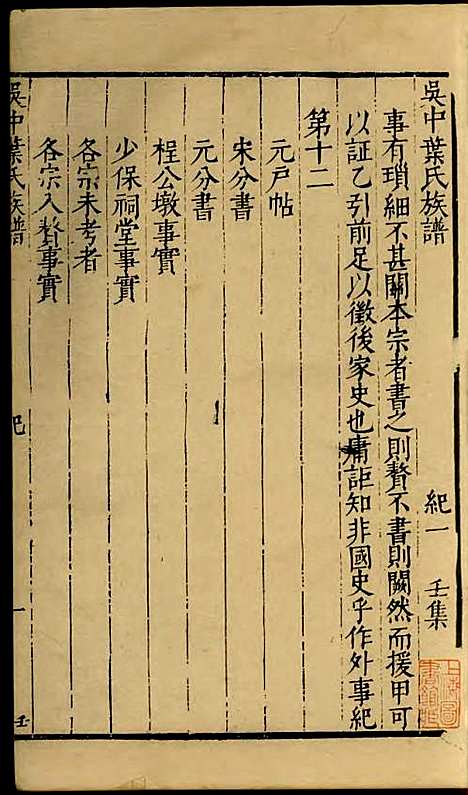 吳中葉氏族譜 紀一 壬集
事有瑣細不甚關本宗者書之則贅不書則闕然而援甲可
以証乙引前足以徵後家史也庸詎知非國史乎作外事紀
第十二
元戶帖
宋分書
元分書
桯公墩事實
少保祠堂事實
各宗未考者
各宗入贅事實
吳中葉氏族譜 紀 一 壬
上海圖書館藏